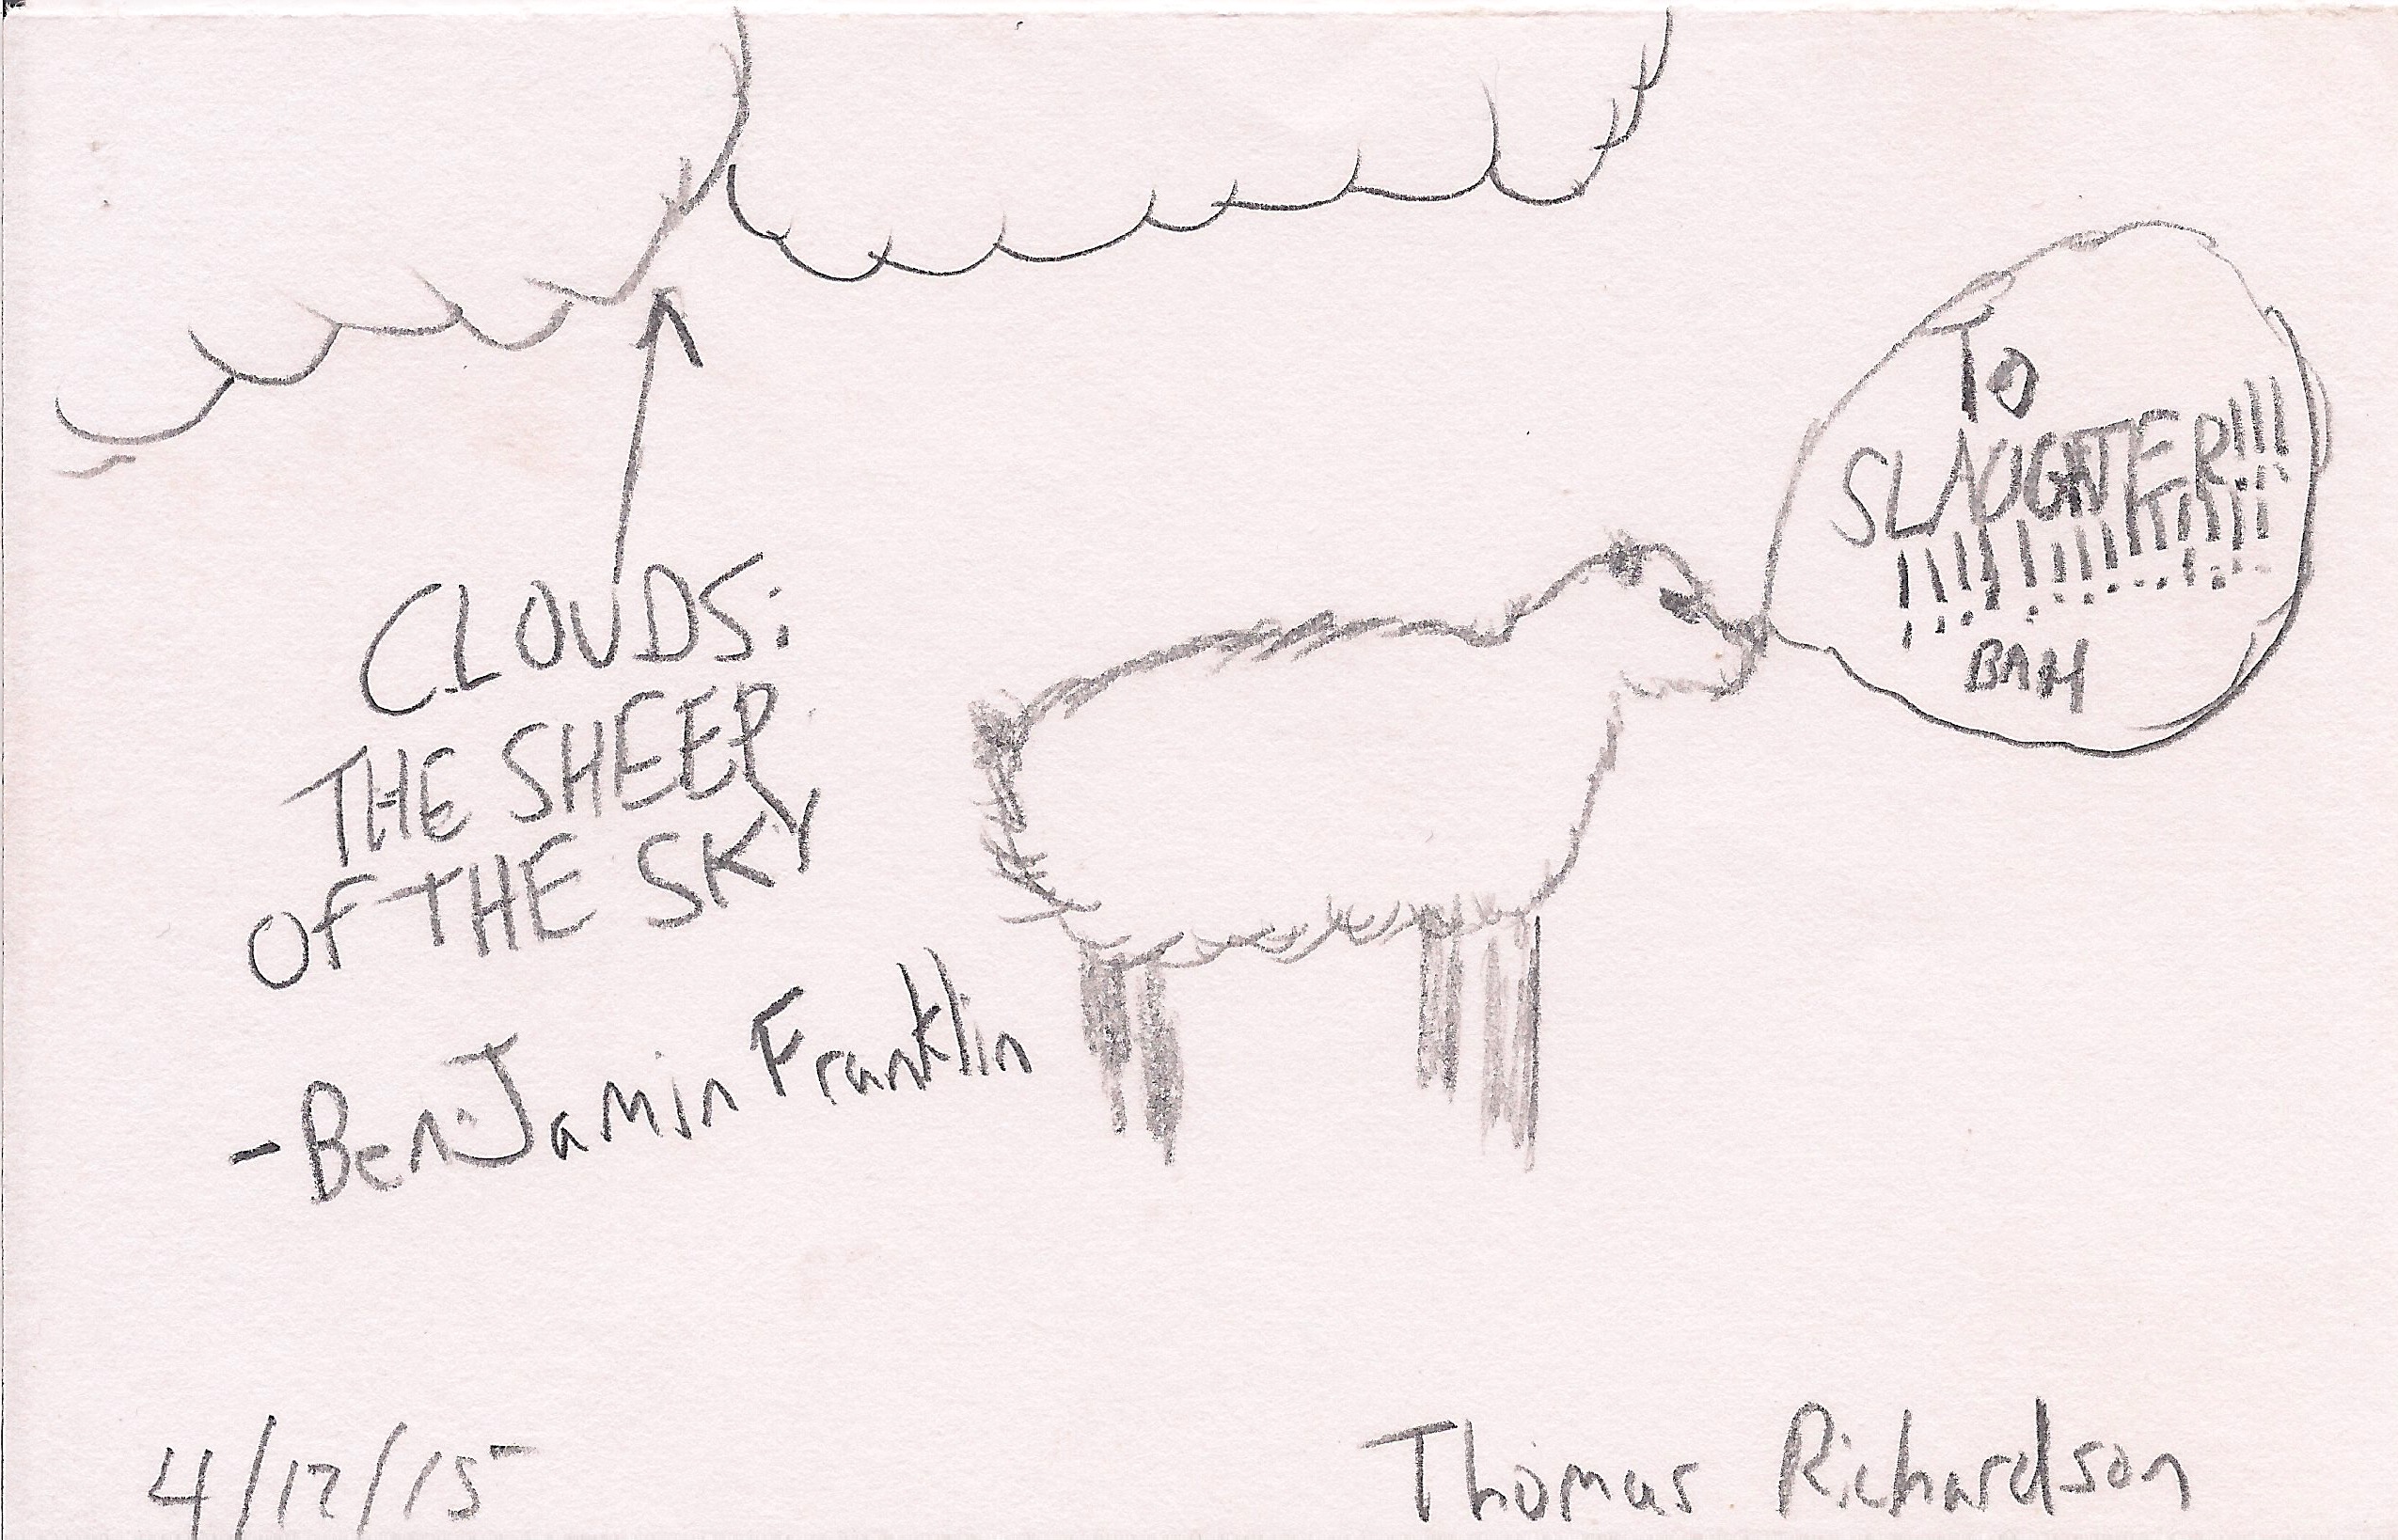 CLOUDS:
THE SHEEP
OF THE SKY
-BenJamin Franklin
TO
SLAUGHTER!!!
!!!!!!!!!!!!!!
BAH
4/12/15
Thomas Richardson